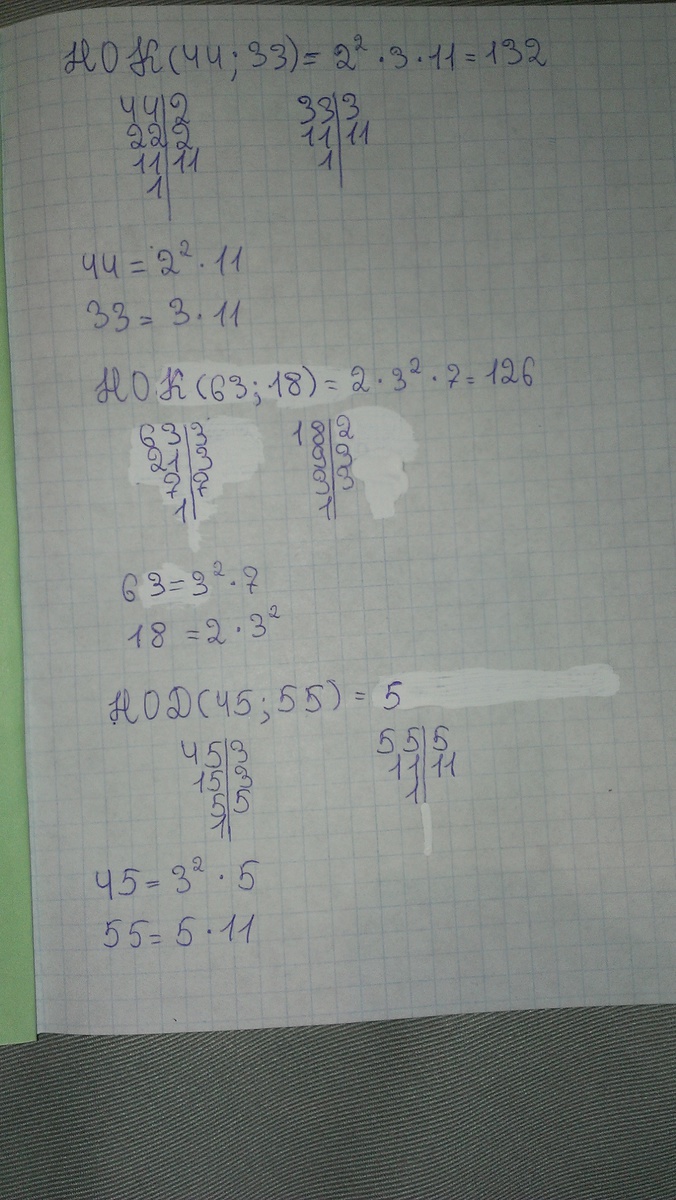 НОК(44; 33) = 2² · 3 · 11 = 132
44|2 33|3
22|2 11|11
11|11 1|
1|
44 = 2² · 11
33 = 3 · 11
НОК(63; 18) = 2 · 3² · 7 = 126
63|3 18|2
21|3 9|3
7|7 3|3
1| 1|
63 = 3² · 7
18 = 2 · 3²
НОD(45; 55) = 5
45|3 55|5
15|3 11|11
5|5 1|
1|
45 = 3² · 5
55 = 5 · 11